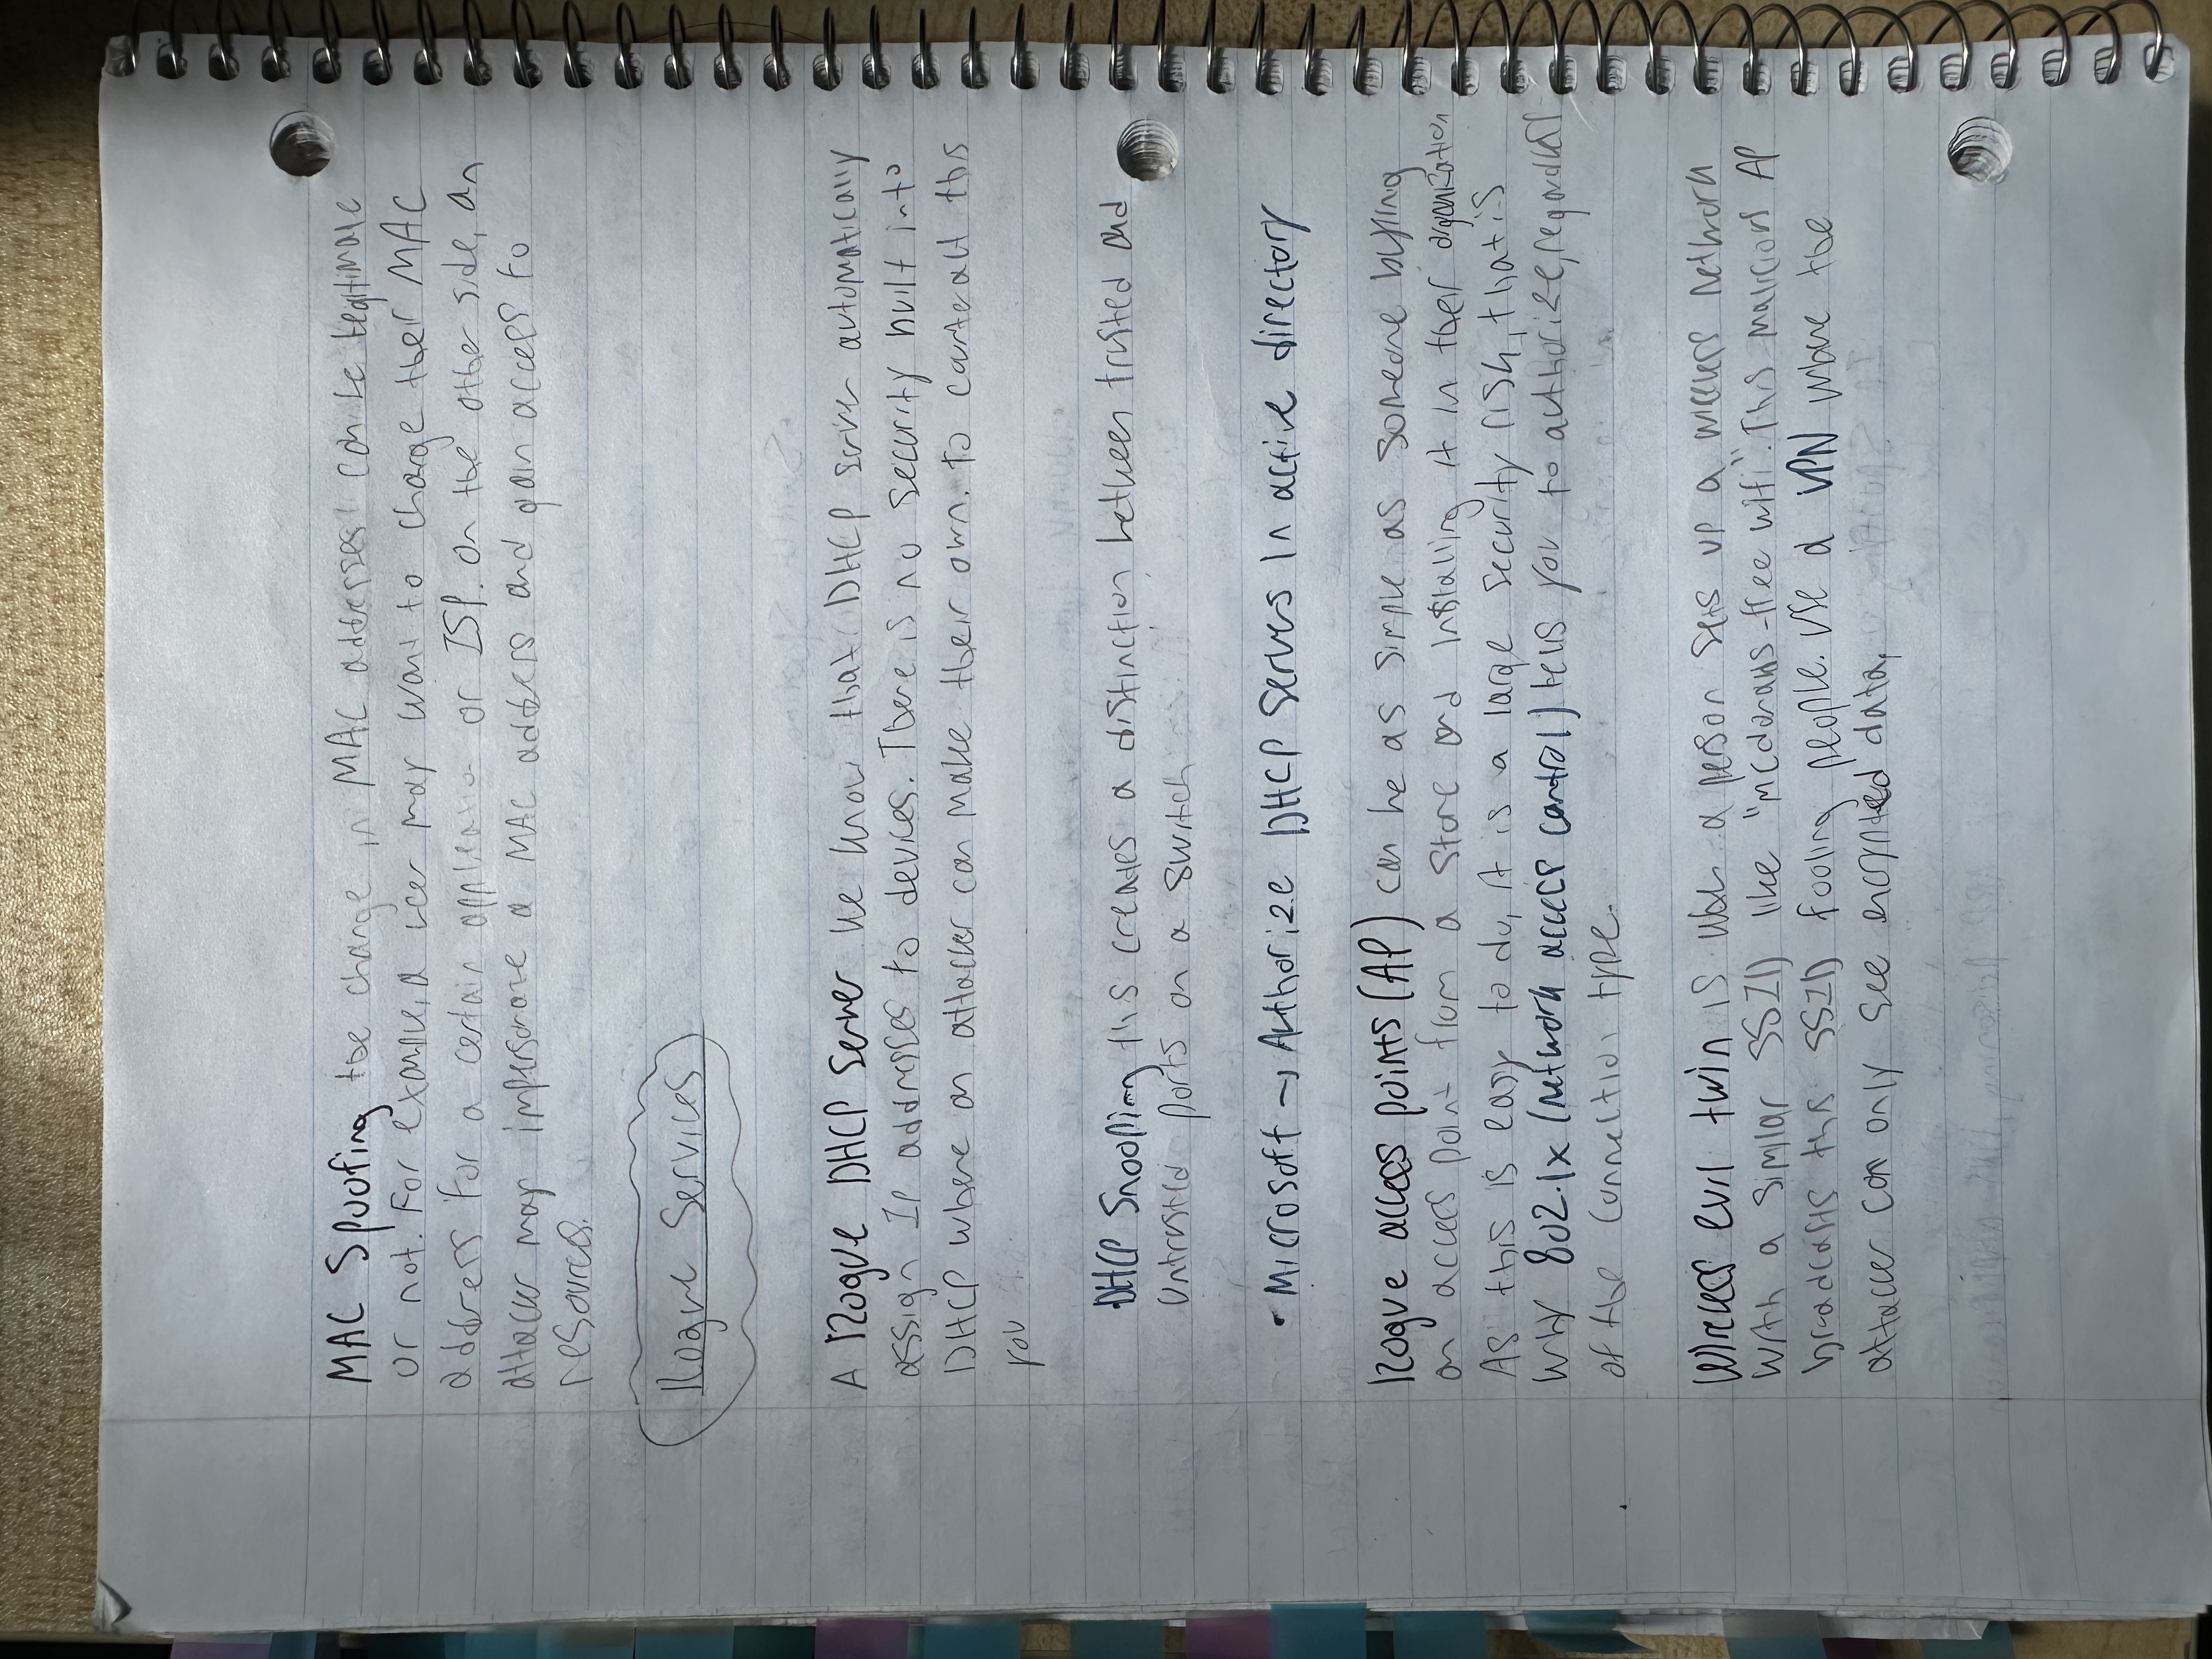 MAC Spoofing the change in MAC addresses can be legitimate
or not. For example, a user may want to change their MAC
address for a certain application or ISP. On the other side, an
attacker may impersonate a MAC address and gain access to
resources.
Rogue Services
A Rogue DHCP Server we know that DHCP server automatically
assign IP addresses to devices. There is no security built into
DHCP where an attacker can make their own. To counteract this
you
DHCP Snooping this creates a distinction between trusted and
untrusted ports on a switch
• Microsoft → Authorize DHCP Servers in active directory
Rogue access points (AP) can be as simple as someone buying
an access point from a store and installing it in their organization
As this is easy to do, it is a large security risk, that is
why 802.1x (network access control) tells you to authorize, regardless
of the connection type.
Wireless evil twin is when a person sets up a wireless network
with a similar SSID like "mcdonalds-free wifi". This malicious AP
broadcasts this SSID fooling people. Use a VPN where the
attacker can only see encrypted data.